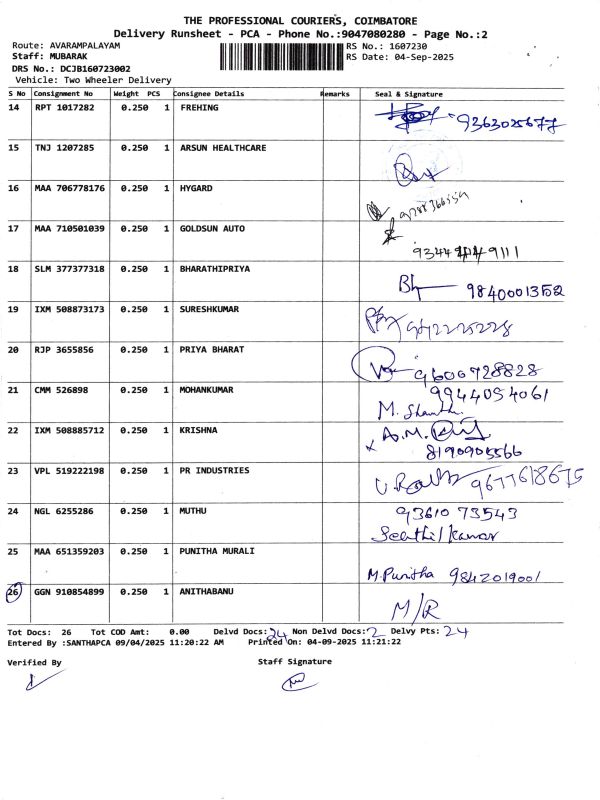 THE PROFESSIONAL COURIERS, COIMBATORE
Delivery Runsheet - PCA - Phone No.:9047080280 - Page No.:2
Route: AVARAMPALAYAM RS No.: 1607230
Staff: MUBARAK RS Date: 04-Sep-2025
DRS No.: DCJB160723002
Vehicle: Two Wheeler Delivery
S No Consignment No Weight PCS Consignee Details Remarks Seal & Signature
14 RPT 1017282 0.250 1 FREHING 9363025677
15 TNJ 1207285 0.250 1 ARSUN HEALTHCARE
16 MAA 706778176 0.250 1 HYGARD
17 MAA 710501039 0.250 1 GOLDSUN AUTO
18 SLM 377377318 0.250 1 BHARATHIPRIYA
19 IXM 508873173 0.250 1 SURESHKUMAR
20 RJP 3655856 0.250 1 PRIYA BHARAT 9600728828
21 CMM 526898 0.250 1 MOHANKUMAR 9944054061
M. Shanthi
22 IXM 508885712 0.250 1 KRISHNA
8190905566
23 VPL 519222198 0.250 1 PR INDUSTRIES 9677618675
24 NGL 6255286 0.250 1 MUTHU 9361073543
Senthil kumar
25 MAA 651359203 0.250 1 PUNITHA MURALI
M.Punitha 9842019001
26 GGN 910854899 0.250 1 ANITHABANU
M/R
Tot Docs: 26 Tot COD Amt: 0.00 Delvd Docs: 24 Non Delvd Docs: 2 Delvy Pts: 24
Entered By :SANTHAPCA 09/04/2025 11:20:22 AM Printed On: 04-09-2025 11:21:22
Verified By Staff Signature